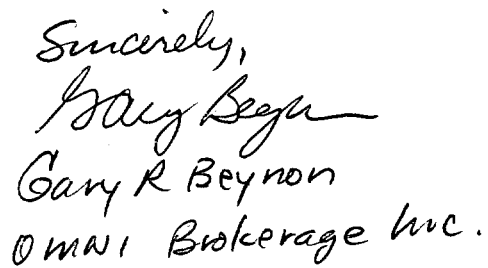 Sincerely,
Gary Beyn
Gary R Beynon
OMNI Brokerage Inc.